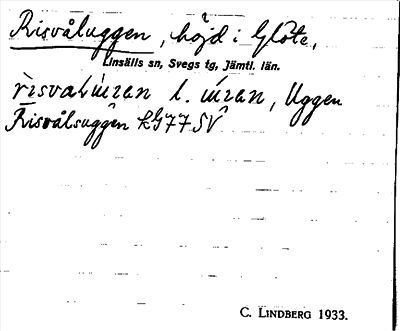 Risvåluggen, höjd i Glöte,
Linsälls sn, Svegs tg, Jämtl. län.
l. Uggen
Risvålsuggen kG77SV
C. LINDBERG 1933.